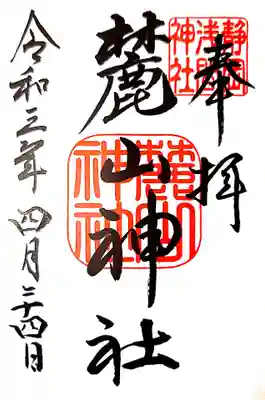 奉拝
静岡
浅間
神社
麓山神社
麓山
神社
令和三年 四月三十四日